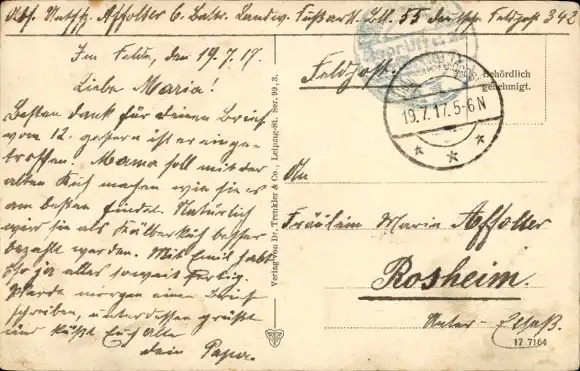 Abs. Utffz. Affolter 6. Battr. Landw. Fußart. Batl. 55 deutsche Feldpost 342
Im Felde, den 19.7.17.
Liebe Maria!
Besten Dank für deinen Brief
vom 12. gestern ist er einge-
troffen. Mama soll mit der
alten Kuh machen wie sie es
am besten findet. Natürlich
wird sie als Kälberkuh besser
bezahlt werden. Mit Emil habt
Ihr ja alles soweit fertig.
Werde morgen einen Brief
schreiben, unterdessen grüßt
und küßt Euch Alle
dein Papa.
Verlag von Dr. Trenkler & Co., Leipzig-St. Ser. 99, 3.
Feldpost.
Geprüft
Behördlich
genehmigt.
19.7.17. 5-6 N
An
Fräulein Maria Affolter
Rosheim.
Unter-Elsaß.
17 7164